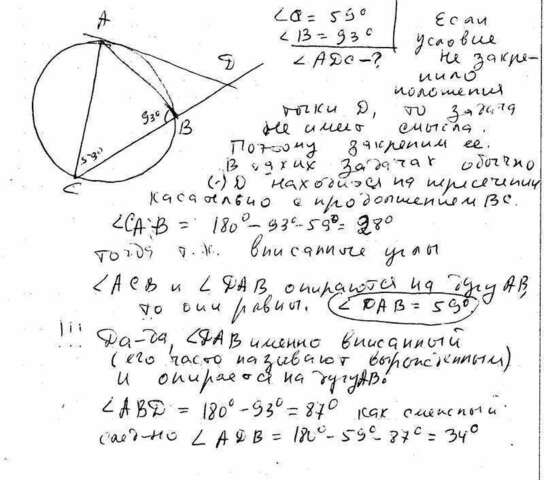 ∠C = 59°
∠B = 93°
∠ADC - ?
Если
условие
не закре-
пило
положения
точки D, то задача
не имеет смысла.
Поэтому закрепим её.
В таких задачах обычно
(·) D находится на пересечении
касательно с продолжением BC.
A
D
93°
B
59°
C
∠CAB = 180° - 93° - 59° = 28°
тогда т.к. вписанные углы
∠ACB и ∠DAB опираются на дугу AB,
то они равны. ∠DAB = 59°
!!! Да-да, ∠DAB именно вписанный
(его часто называют вырожденным)
и опирается на дугу AB.
∠ABD = 180° - 93° = 87° как смежный
∠ADB = 180° - 59° - 87° = 34°